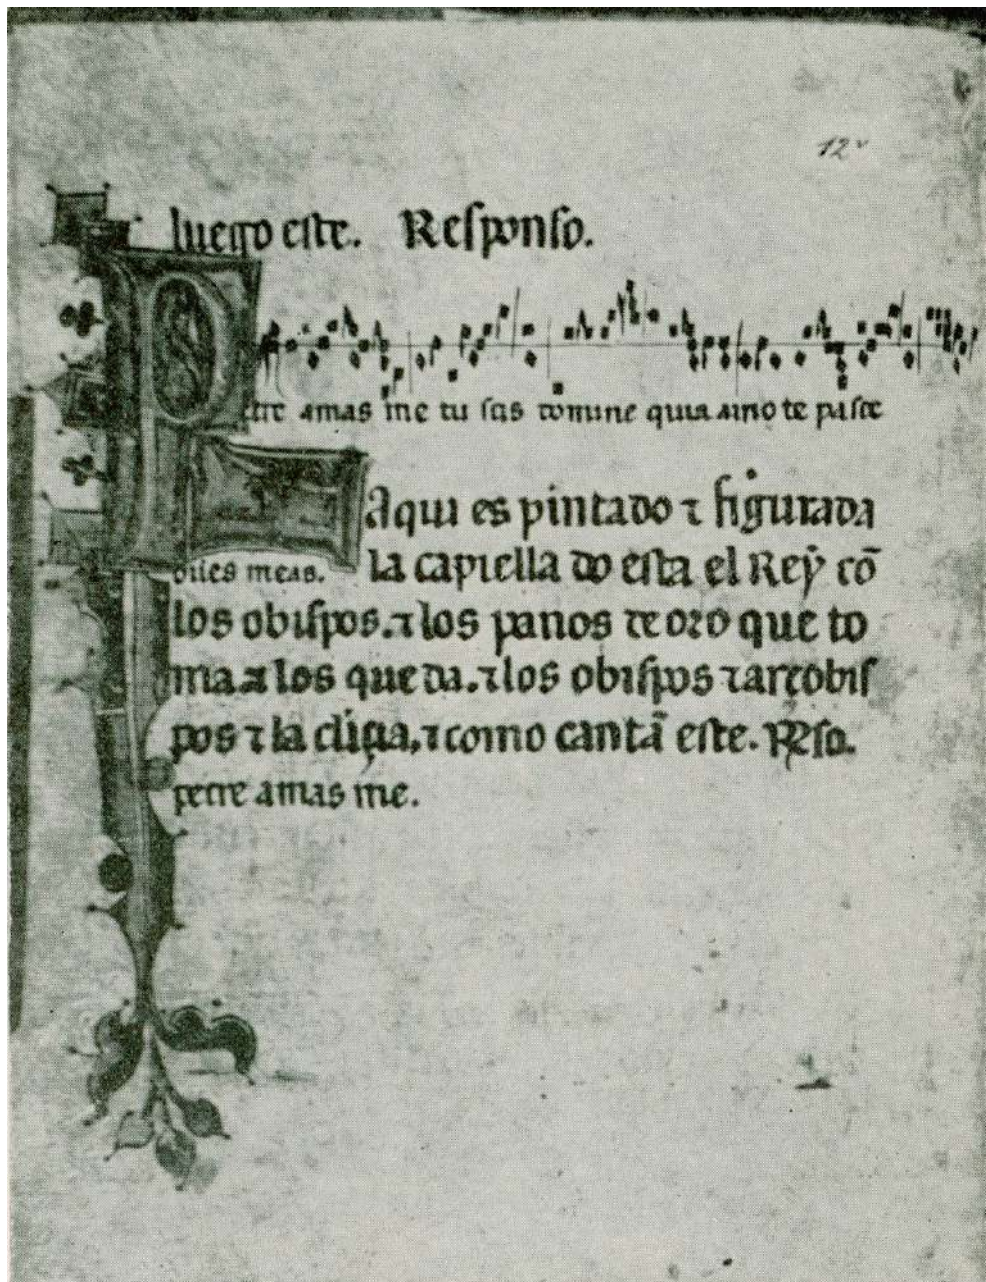 12v
luego este. Responso.
Petre amas me tu scis domine quia amo te pasce
Aqui es pintado ⁊ figurada
oues meas. la capiella do esta el Rey cõ
los obispos. ⁊ los panos de oro que to
ma ⁊ los que da. ⁊ los obispos ⁊ arçobis
pos ⁊ la cl̃içia, ⁊ como cantã este. R̃so.
petre amas me.